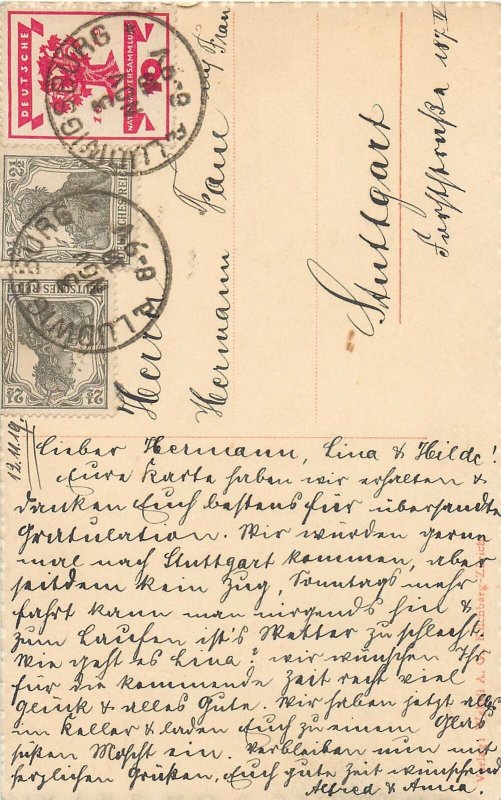 DEUTSCHE
NATIONALVERSAMMLUNG
10
LUDWIGSBURG
8-9V
DEUTSCHES REICH
2½
LUDWIGSBURG
8-9V
DEUTSCHES REICH
2½ 2½
Herr
Hermann
Frau
Stuttgart
Forststraße 187
13.11.19.
Lieber Hermann, Lina & Hilde!
Eure Karte haben wir erhalten &
danken Euch bestens für übersandte
Gratulation. Wir würden gerne
mal nach Stuttgart kommen, aber
seitdem kein Zug, Sonntags mehr
fährt kann man nirgends hin &
zum Laufen ist's Wetter zu schlecht.
Wie geht es Lina? wir wünschen Ihr
für die kommende Zeit recht viel
Glück & alles Gute. Wir haben jetzt alles
im Keller & laden Euch zu einem Glas
süßen Moscht ein. Verbleiben nun mit
herzlichen Grüßen, Euch gute Zeit wünschend
Alfred & Anna.